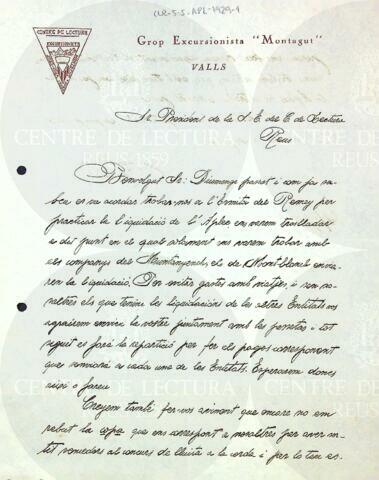 CLR-S-S. APL-1929-1
CENTRE DE LECTURA
EXCURSIONISTA
Grop Excursionista "Montagut"
VALLS
Sr. President de la S. E. del C. de Lectura
Reus
Benvolgut Sr: Diumenge passat i com ja sa-
beu es va acordar trobar-nos a l'Ermita del Remei per
practicar la liquidació de l'Aplec en varem traslladar
a dit punt en el qual solament ens varem trobar amb
els companys del Muntanyench, els de Montblanch envia-
ren la liquidació. Per evitar gastos amb viatjes, i son no-
saltres els que tenim les liquidacions de les altres Entitats vos
agrairem envieu la vostre juntament amb les pessetes i tot
seguit es farà la repartició per fer els pagos corresponent
que romindrà a cada una de les Entitats. Esperarem doncs
aixis o fareu.
Creyem també fer-vos avinent que encare no em
rebut la copa que ens correspont a nosaltres per aver su-
tét vencedors al concurs de lluita a la corda i per lo tan es-
CENTRE DE LECTURA
REUS-1859